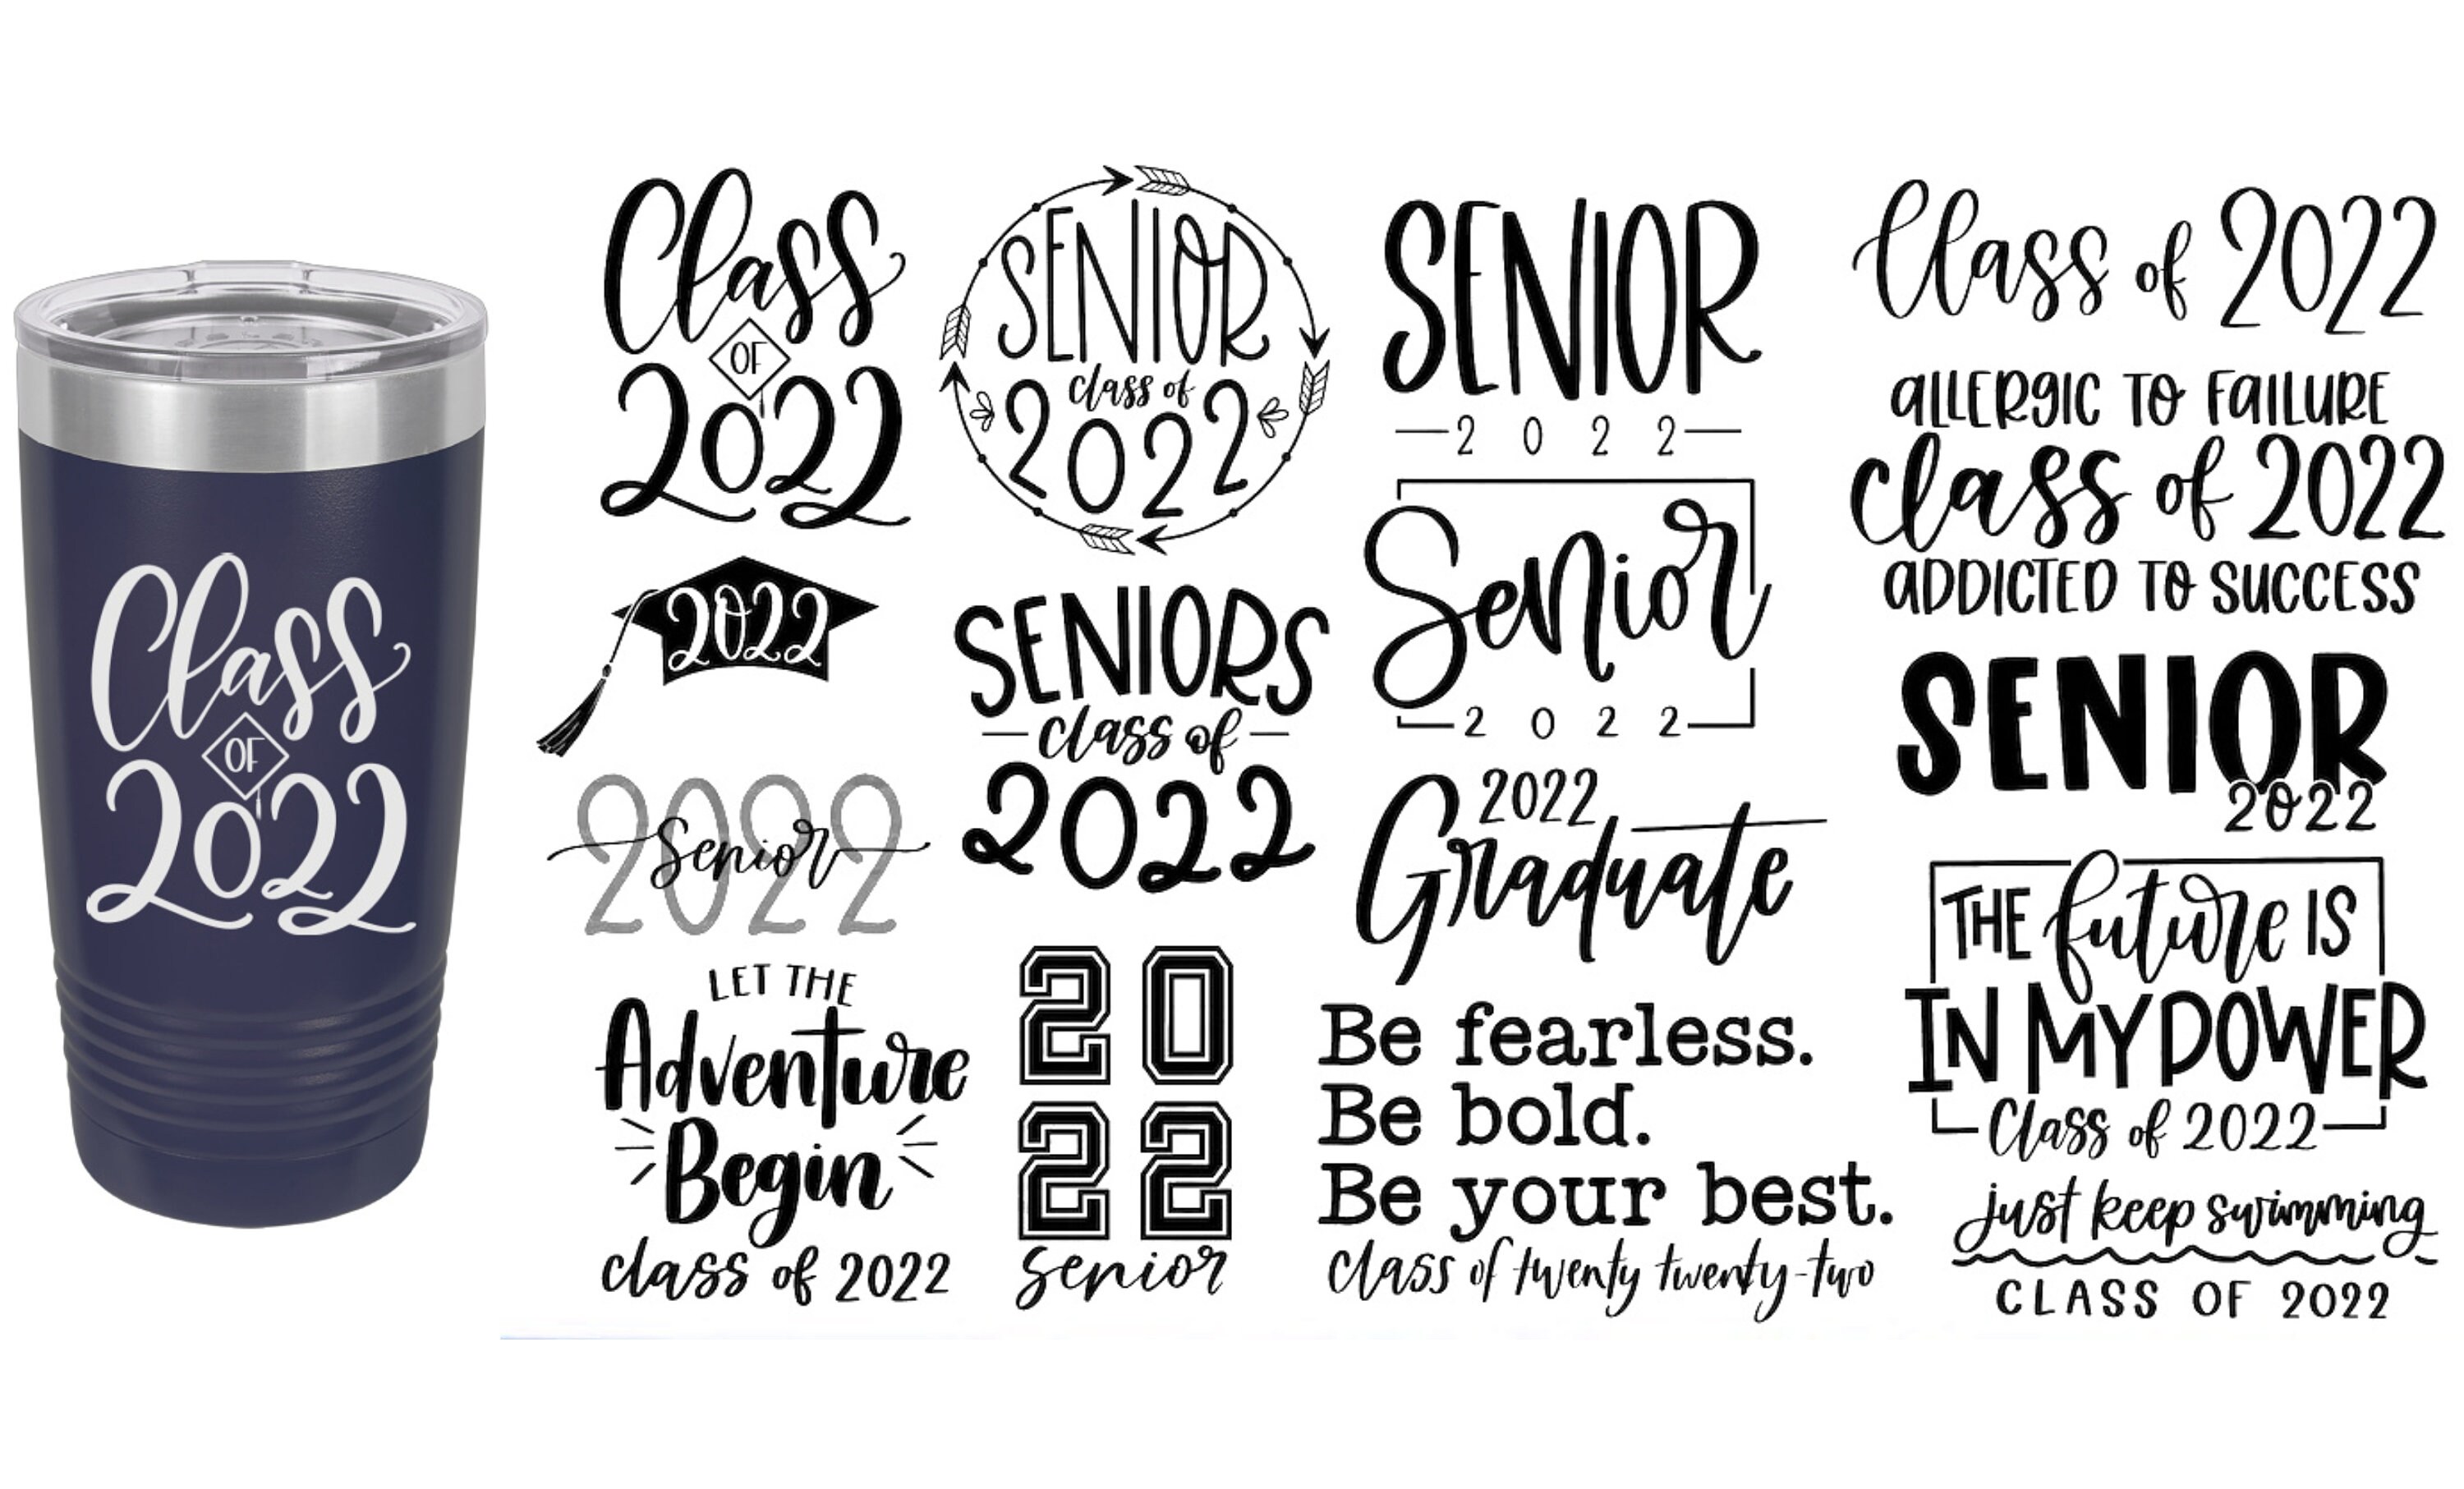 Class
OF
2022
Class
OF
2022
2022
2022
Senior
LET THE
Adventure
Begin
class of 2022
SENIOR
class of
2022
SENIORS
class of
2022
20
22
senior
SENIOR
2022
Senior
2022
2022
Graduate
Be fearless.
Be bold.
Be your best.
class of twenty twenty-two
Class of 2022
ALLERGIC TO FAILURE
class of 2022
ADDICTED TO SUCCESS
SENIOR
2022
THE future IS
IN MY POWER
Class of 2022
just keep swimming
CLASS OF 2022